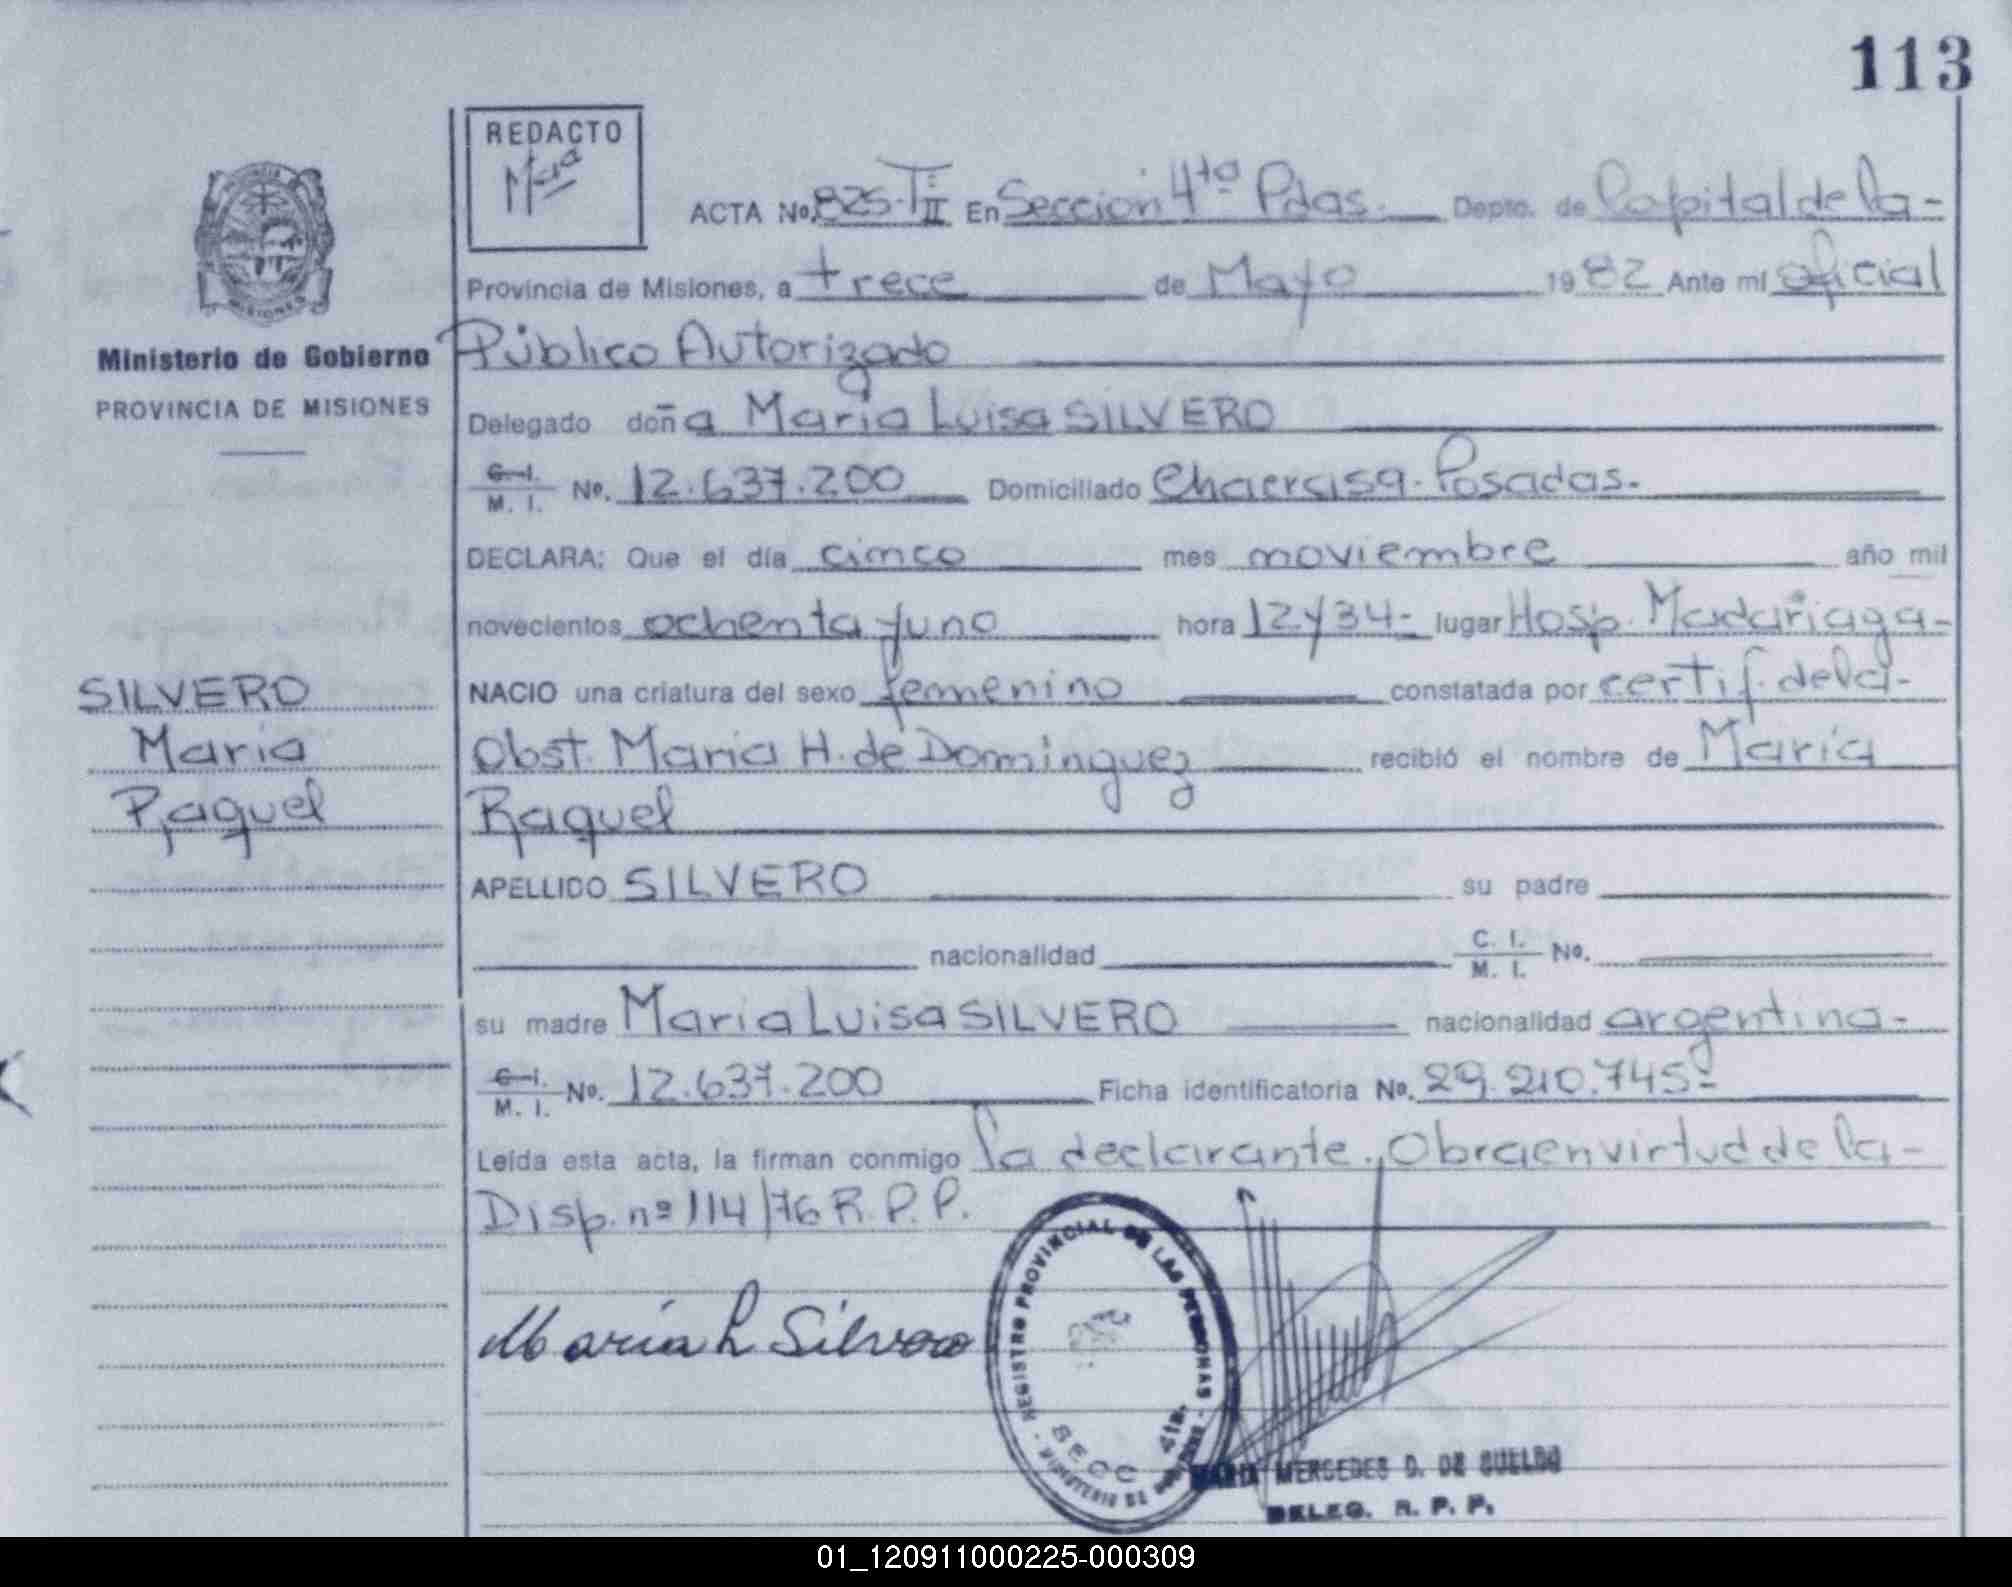 113
REDACTO
Mria
ACTA No. 825-T II En Sección 4ta Pdas. Depto. de Capital de la-
Provincia de Misiones, a trece de Mayo 1982 Ante mi oficial
Público Autorizado
Delegado doña María Luisa SILVERO
C. I. M. I. No. 12.637.200 Domiciliado Chacrasa. Posadas.
DECLARA: Que el día cinco mes noviembre año mil
novecientos ochenta y uno hora 12y34- lugar Hosp. Madariaga-
NACIO una criatura del sexo femenino constatada por certif. de la-
Obst. María H. de Domínguez recibió el nombre de María
Raquel
APELLIDO SILVERO su padre
nacionalidad C. I. M. I. No.
su madre María Luisa SILVERO nacionalidad argentina-
C. I. M. I. No. 12.637.200 Ficha identificatoria No. 29.210.745-
Leída esta acta, la firman conmigo la declarante. Obra en virtud de la-
Disp. nº 114/76 R. P. P.
María L Silvero
REGISTRO PROVINCIAL DE LAS PERSONAS - MINISTERIO DE
SECC 4ta.
MARIA MERCEDES D. DE SUELDO
DELEG. R. P. P.
Ministerio de Gobierno
PROVINCIA DE MISIONES
SILVERO
María
Raquel
01_120911000225-000309